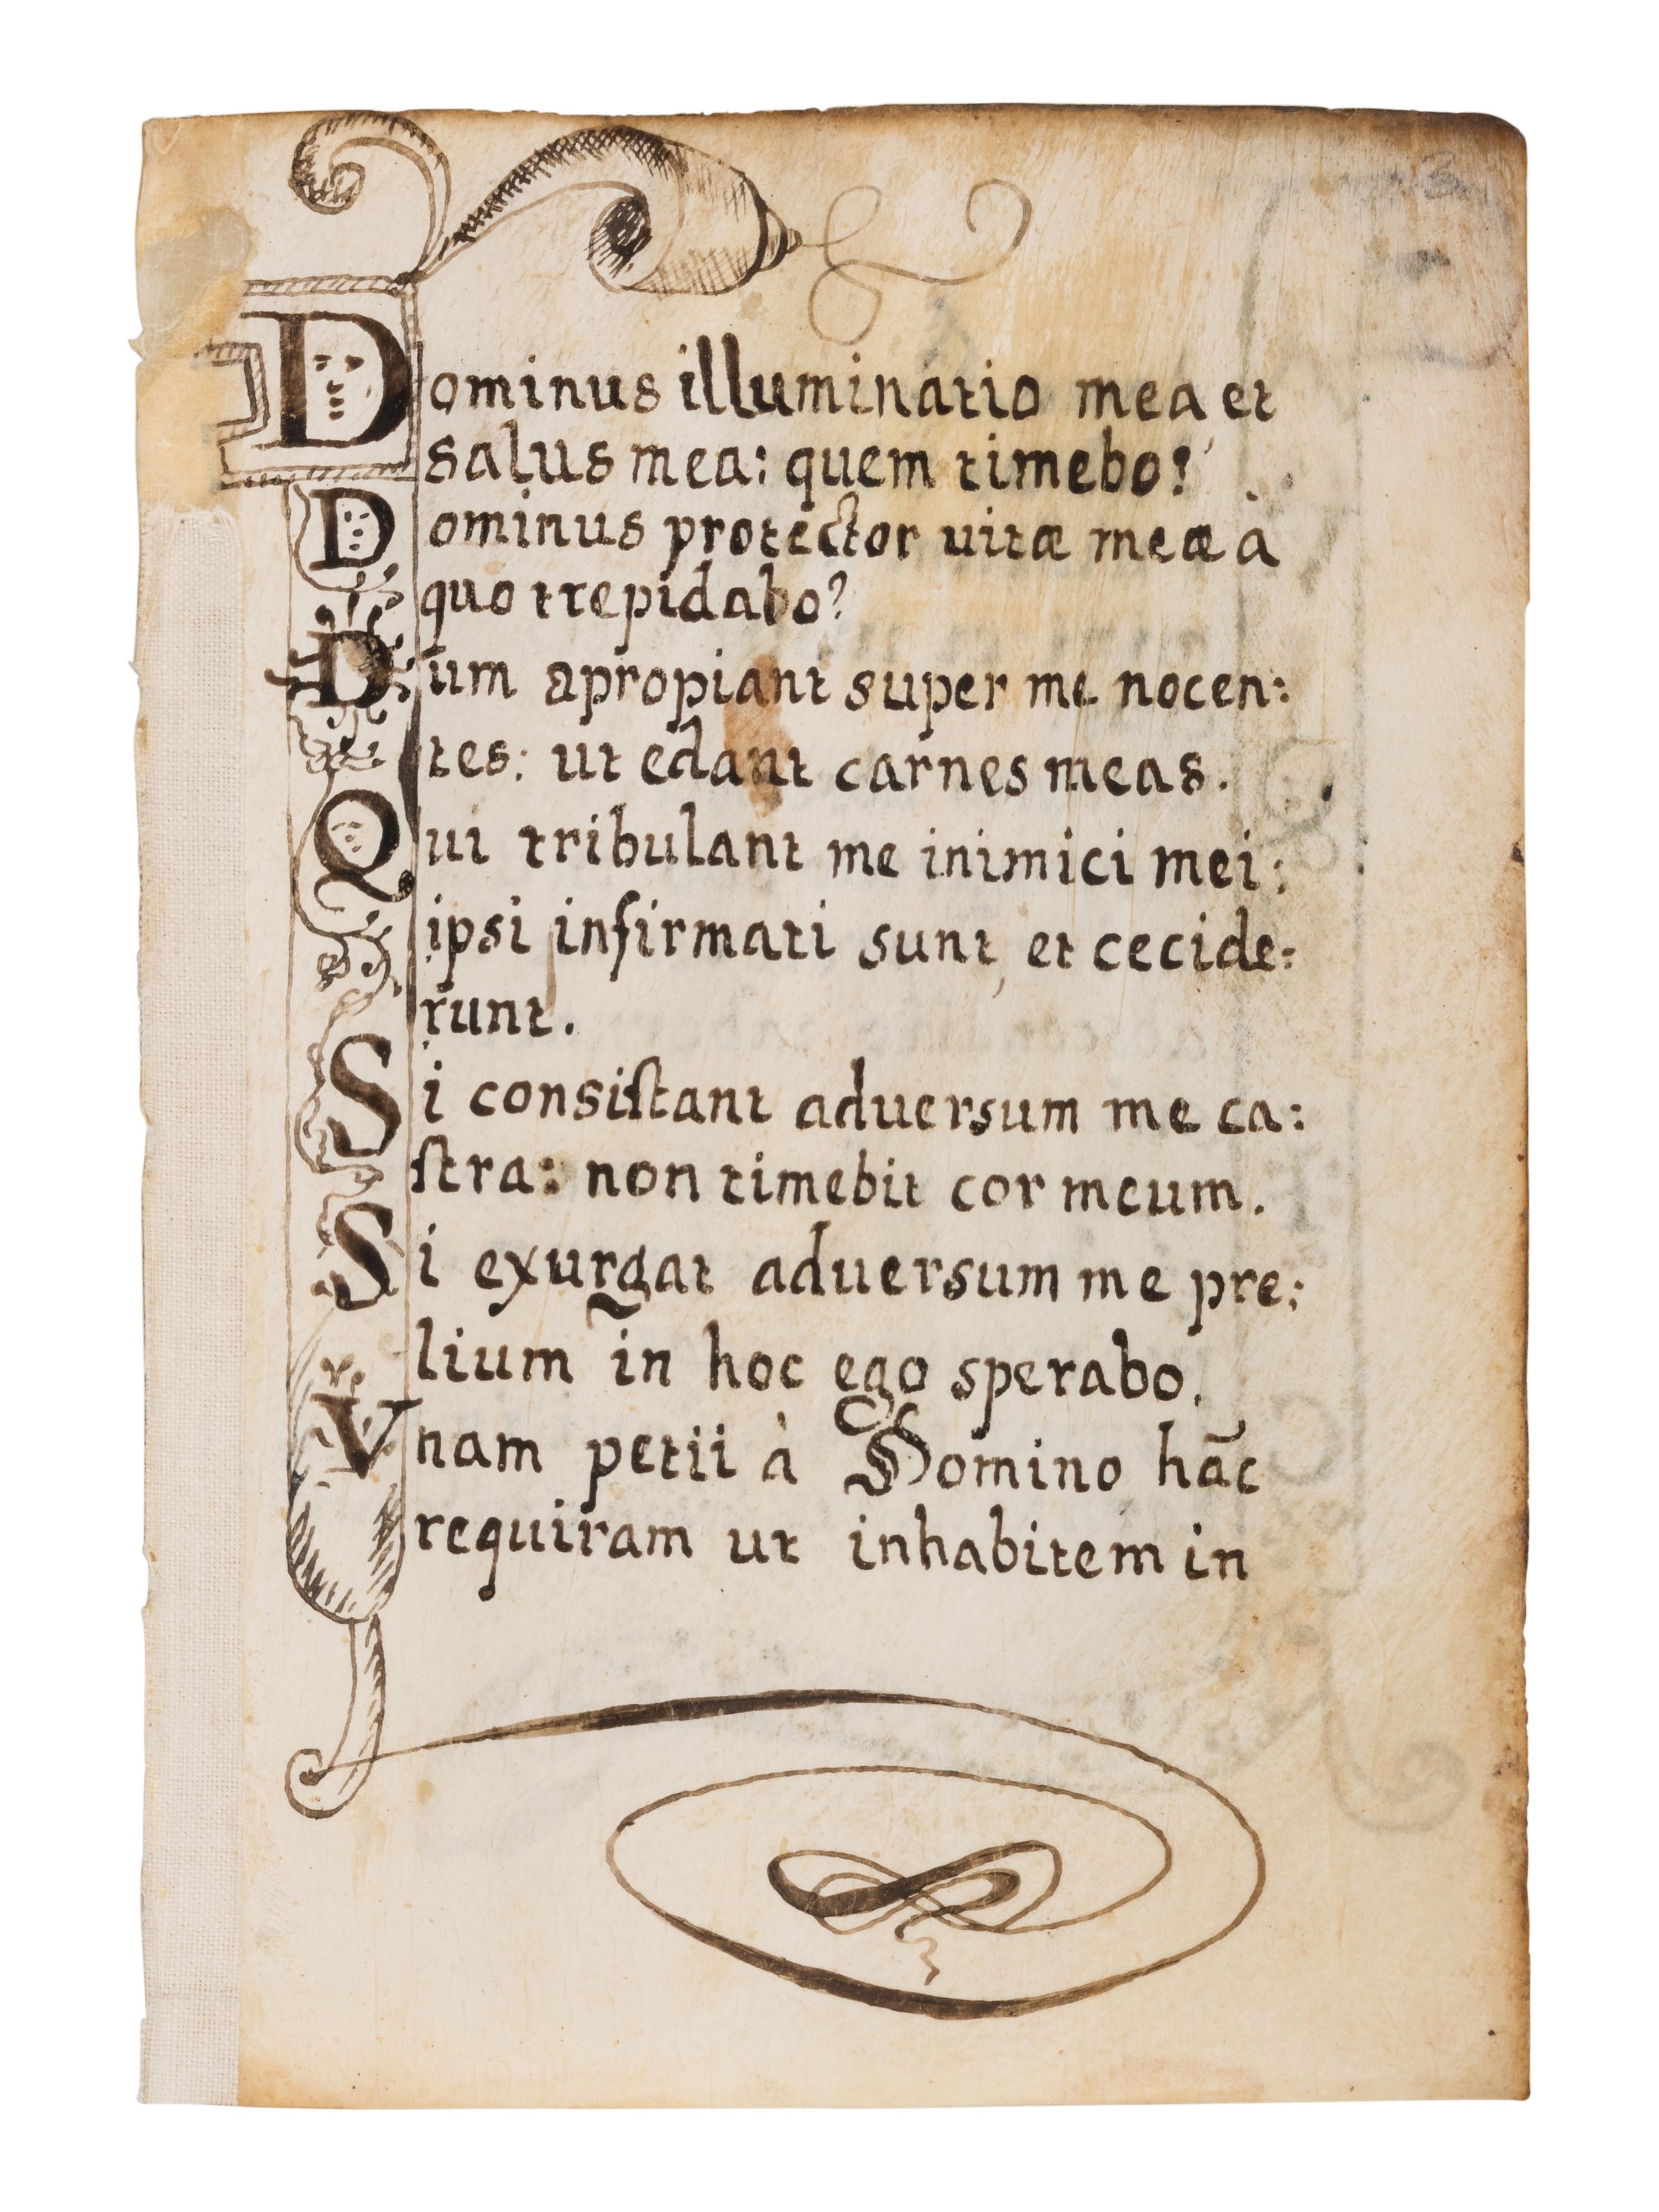 Dominus illuminatio mea et
salus mea: quem timebo?
Dominus protector uitæ meæ à
quo trepidabo?
Dum apropiant super me nocen:
tes: ut edant carnes meas.
Qui tribulant me inimici mei:
ipsi infirmati sunt, et cecide:
runt.
Si consistant aduersum me ca:
stra: non timebit cor meum.
Si exurgat aduersum me pre:
lium in hoc ego sperabo.
Vnam petii à Domino hãc
requiram ut inhabitem in